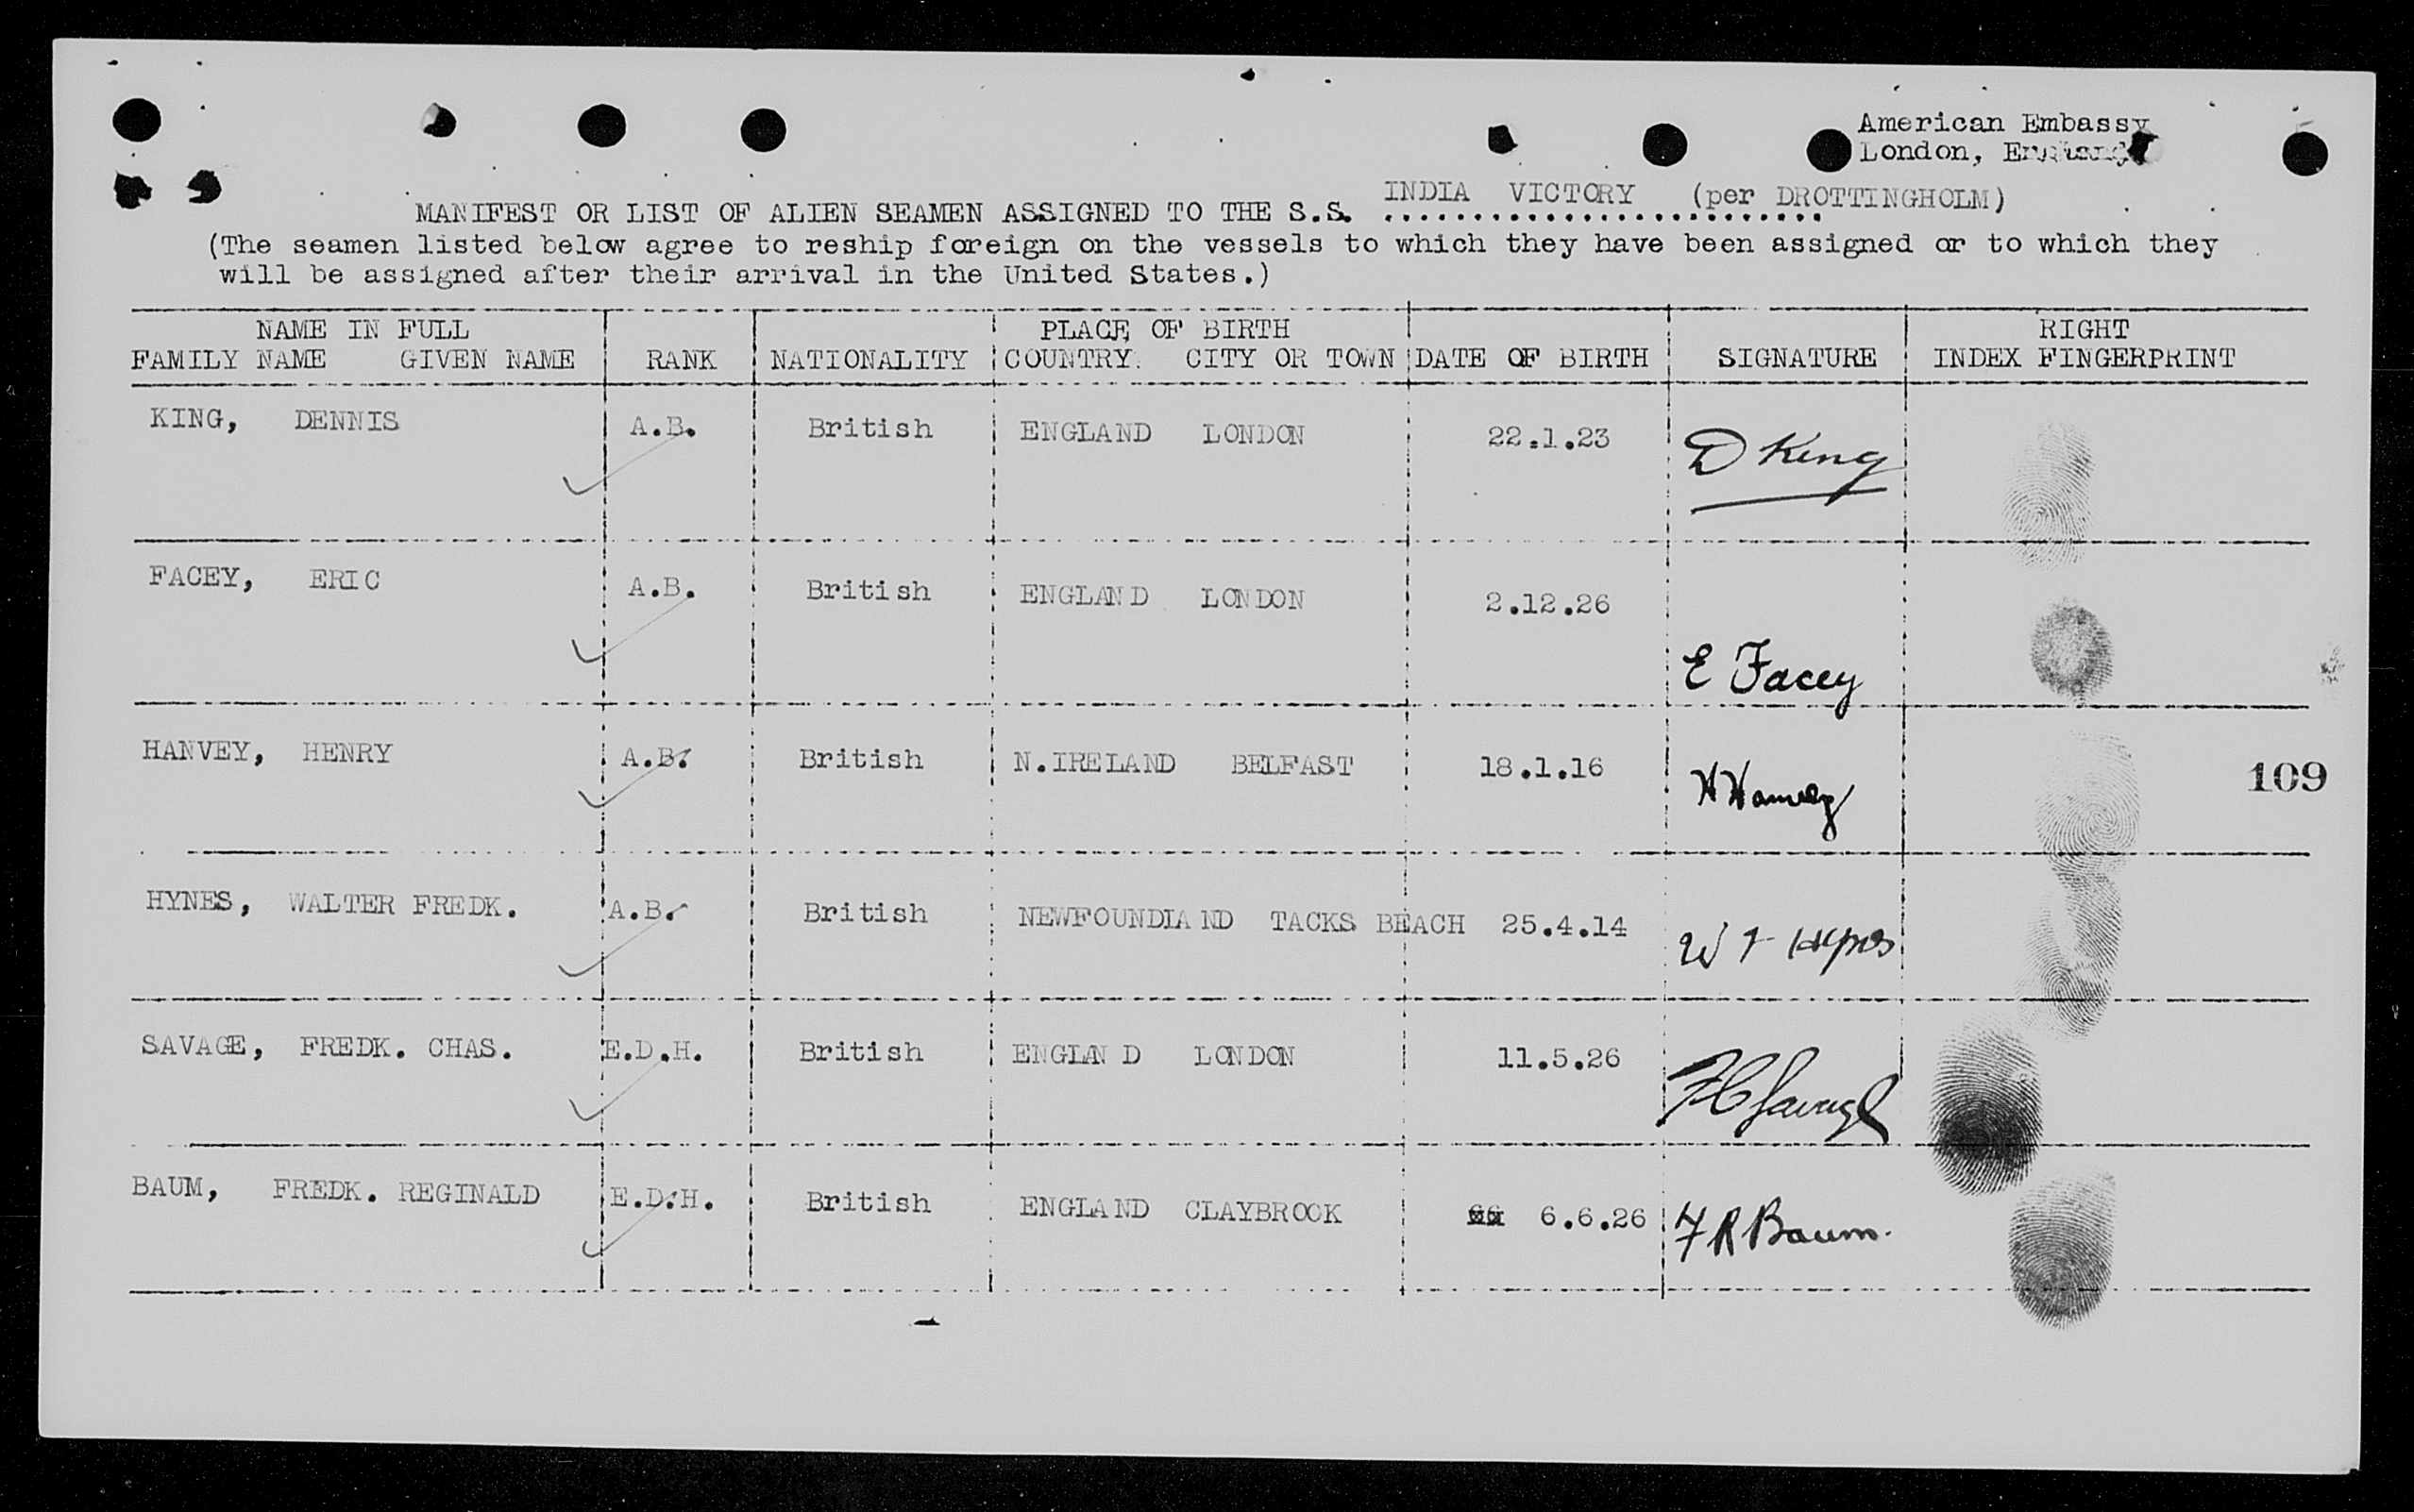 American Embassy
London, England
INDIA VICTORY (per DROTTINGHOLM)
MANIFEST OR LIST OF ALIEN SEAMEN ASSIGNED TO THE S.S. ........................
(The seamen listed below agree to reship foreign on the vessels to which they have been assigned or to which they
will be assigned after their arrival in the United States.)
NAME IN FULL PLACE OF BIRTH RIGHT
FAMILY NAME GIVEN NAME RANK NATIONALITY COUNTRY. CITY OR TOWN DATE OF BIRTH SIGNATURE INDEX FINGERPRINT
KING, DENNIS A.B. British ENGLAND LONDON 22.1.23 D King
FACEY, ERIC A.B. British ENGLAND LONDON 2.12.26 E Facey
HANVEY, HENRY A.B. British N.IRELAND BELFAST 18.1.16 H Hanvey
109
HYNES, WALTER FREDK. A.B. British NEWFOUNDLAND TACKS BEACH 25.4.14 W F Hynes
SAVAGE, FREDK. CHAS. E.D.H. British ENGLAND LONDON 11.5.26 F C Savage
BAUM, FREDK. REGINALD E.D.H. British ENGLAND CLAYBROOK 6.6.26 F R Baum.